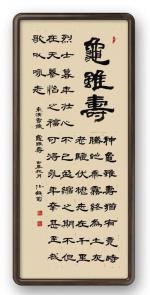 龜雖壽
神龜雖壽猶有竟時
騰蛇乘霧終為土灰
老驥伏櫪志在千里
烈士暮年壯心不已盈縮之期不但
在天養怡之福可得永年幸甚至哉
歌以咏志
東漢曹操 龜雖壽